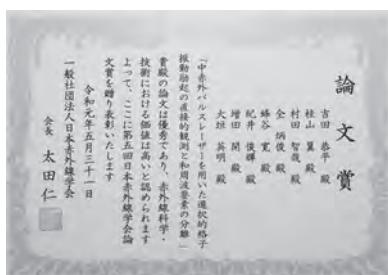 論文賞
吉田 恭平 殿
桂山 翼 殿
村田 智哉 殿
全 炳俊 殿
蜂谷 寛 殿
紀井 俊輝 殿
増田 開 殿
大垣 英明 殿
「中赤外パルスレーザーを用いた選択的格子
振動励起の直接的観測と和周波要素の分離」
貴殿の論文は優秀であり、赤外線科学・
技術における価値は高いと認められます
よって、ここに第五回日本赤外線学会論
文賞を贈り表彰いたします
令和元年五月三十一日
一般社団法人日本赤外線学会
会長 太田 仁